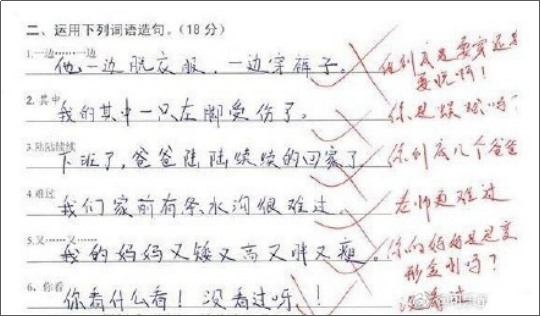 二、运用下列词语造句。(18分)
1.一边……一边
他一边脱衣服,一边穿裤子。
他到底是要穿还是要脱啊!
2.其中
我的其中一只左脚受伤了。
你是蜈蚣吗?
3.陆陆续续
下班了,爸爸陆陆续续的回家了
你到底几个爸爸
4.难过
我们家前有条水沟很难过。
老师更难过
5.又……又
我的妈妈又矮又高又胖又瘦。
你的妈妈是变形金刚吗?
6、你看
你看什么看!没看过呀!!
没看过